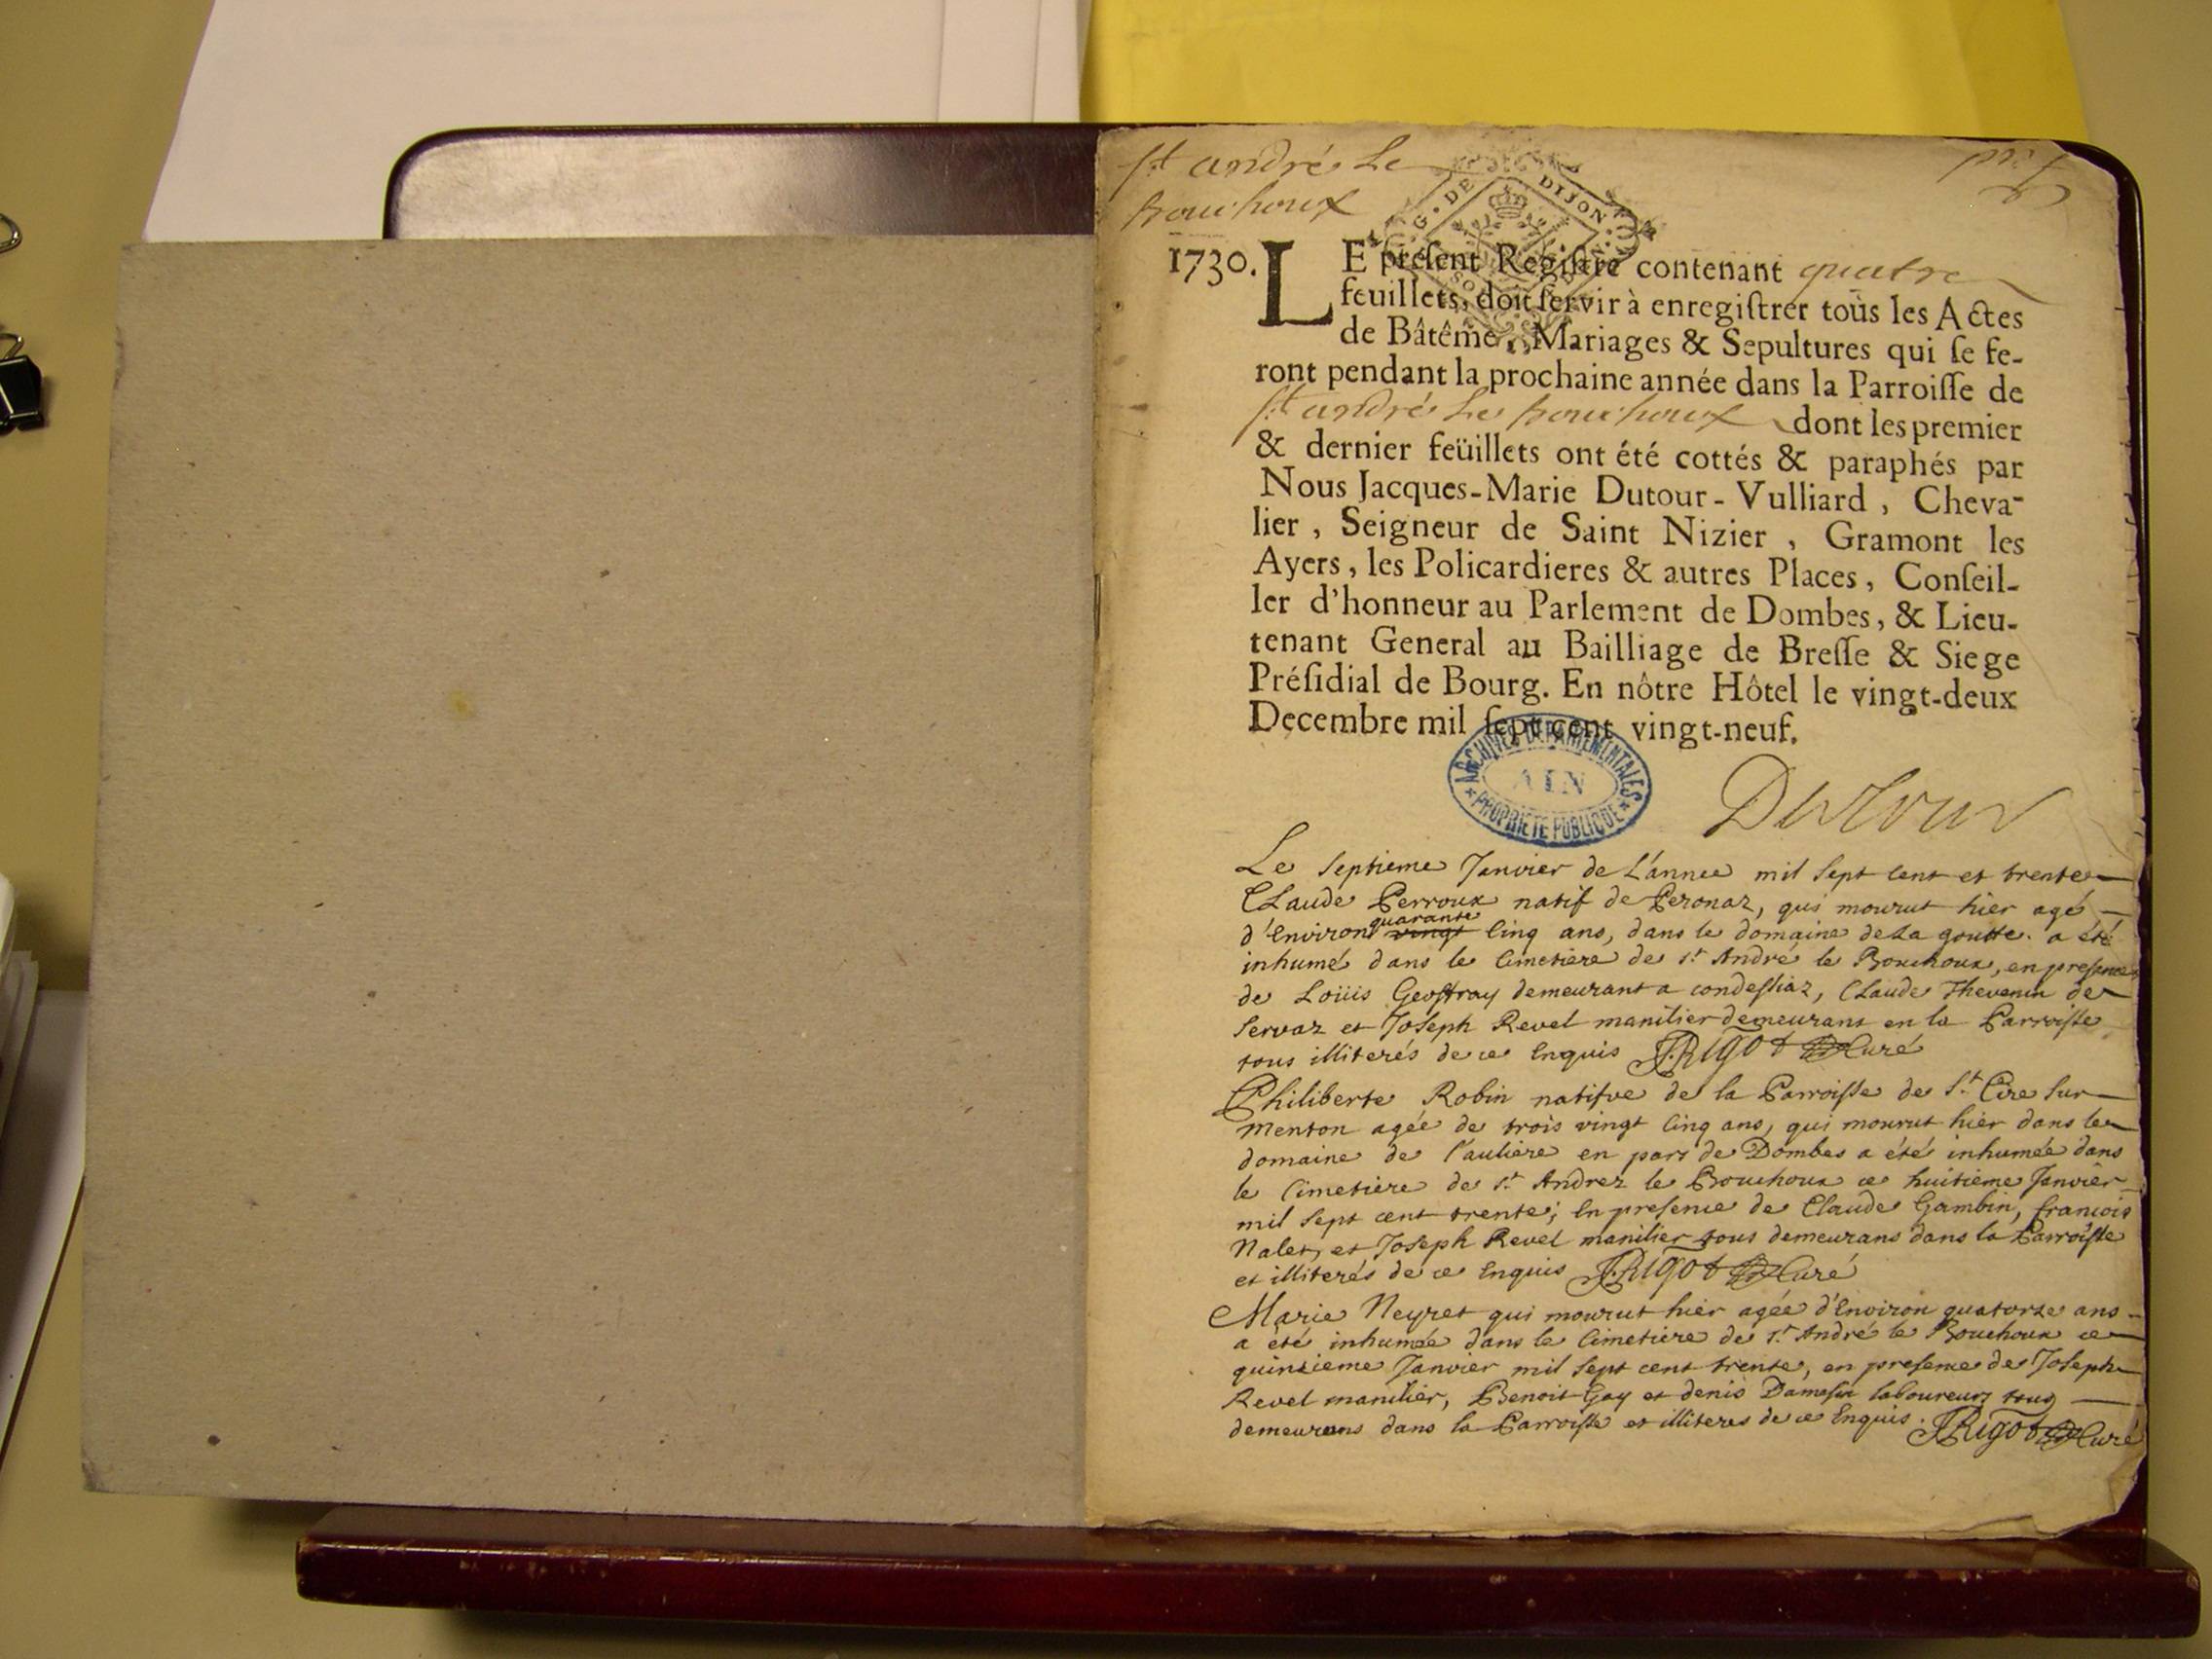 St andré Le
bouchoux
G. DE DIJON
1730. LE présent Regiſtre contenant quatre
feuillets, doit ſervir à enregiſtrer tous les Actes
de Bâtême, Mariages & Sepultures qui ſe fe-
ront pendant la prochaine année dans la Parroiſſe de
St andré Le bouchoux dont les premier
& dernier feüillets ont été cottés & paraphés par
Nous Jacques-Marie Dutour-Vulliard, Cheva-
lier, Seigneur de Saint Nizier, Gramont les
Ayers, les Policardieres & autres Places, Conſeil-
ler d'honneur au Parlement de Dombes, & Lieu-
tenant General au Bailliage de Breſſe & Siege
Préſidial de Bourg. En nôtre Hôtel le vingt-deux
Decembre mil ſept cent vingt-neuf.
ARCHIVES DEPARTEMENTALES
AIN
PROPRIETE PUBLIQUE
Dutour
Le septieme Janvier de L'annee mil sept cent et trente
Claude Perroux natif de Peronaz, qui mourut hier agé
d'environ quarante vingt cinq ans, dans le domaine de La goutte. a été
inhumé dans le cimetiere de st André le Bouchoux, en presence
de Loüis Geoffray demeurant a condessiaz, Claude Thevenin de
Servaz et Joseph Revel manilier demeurant en la Parroisse
tous illiterés de ce enquis J. Rigot Curé
Philiberte Robin natifve de la Parroisse de St Cire sur
menton agée de trois vingt cinq ans, qui mourut hier dans le
domaine de l'auliere en pars de Dombes a été inhumée dans
le cimetière de st Andrez le Bouchoux ce huitieme Janvier
mil sept cent trente; en presence de Claude Gambin, francois
Nalet, et Joseph Revel manilier tous demeurans dans la Parroisse
et illiterés de ce enquis J. Rigot Curé
Marie Neyret qui mourut hier agée d'environ quatorze ans
a été inhumée dans le cimetiere de st André le Bouchoux ce
quinzieme Janvier mil sept cent trente, en presence de Joseph
Revel manilier, Benoit Gay et denis Damesin laboureurs tous
demeurans dans la Parroisse et illiteres de ce enquis. J. Rigot Curé